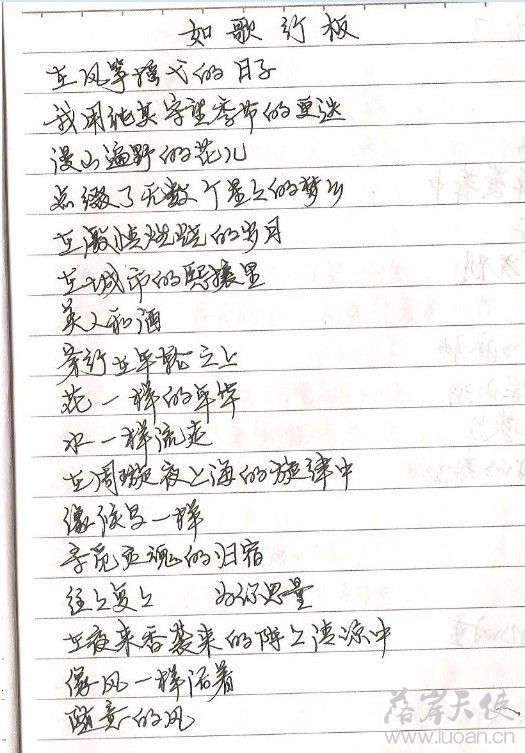 如歌行板
在风筝摇弋的日子
我用纯真守望季节的更迭
漫山遍野的花儿
点缀了无数个星星的梦乡
在激情燃烧的岁月
在城市的熙攘里
美人和酒
穿行在车轮之上
花一样的年华
水一样流走
在周璇夜上海的旋律中
像候鸟一样
寻觅灵魂的归宿
往往复复 为你思量
在夜来香袭来的阵阵清凉中
像风一样活着
随意的风
落岸天使
www.luoan.cn